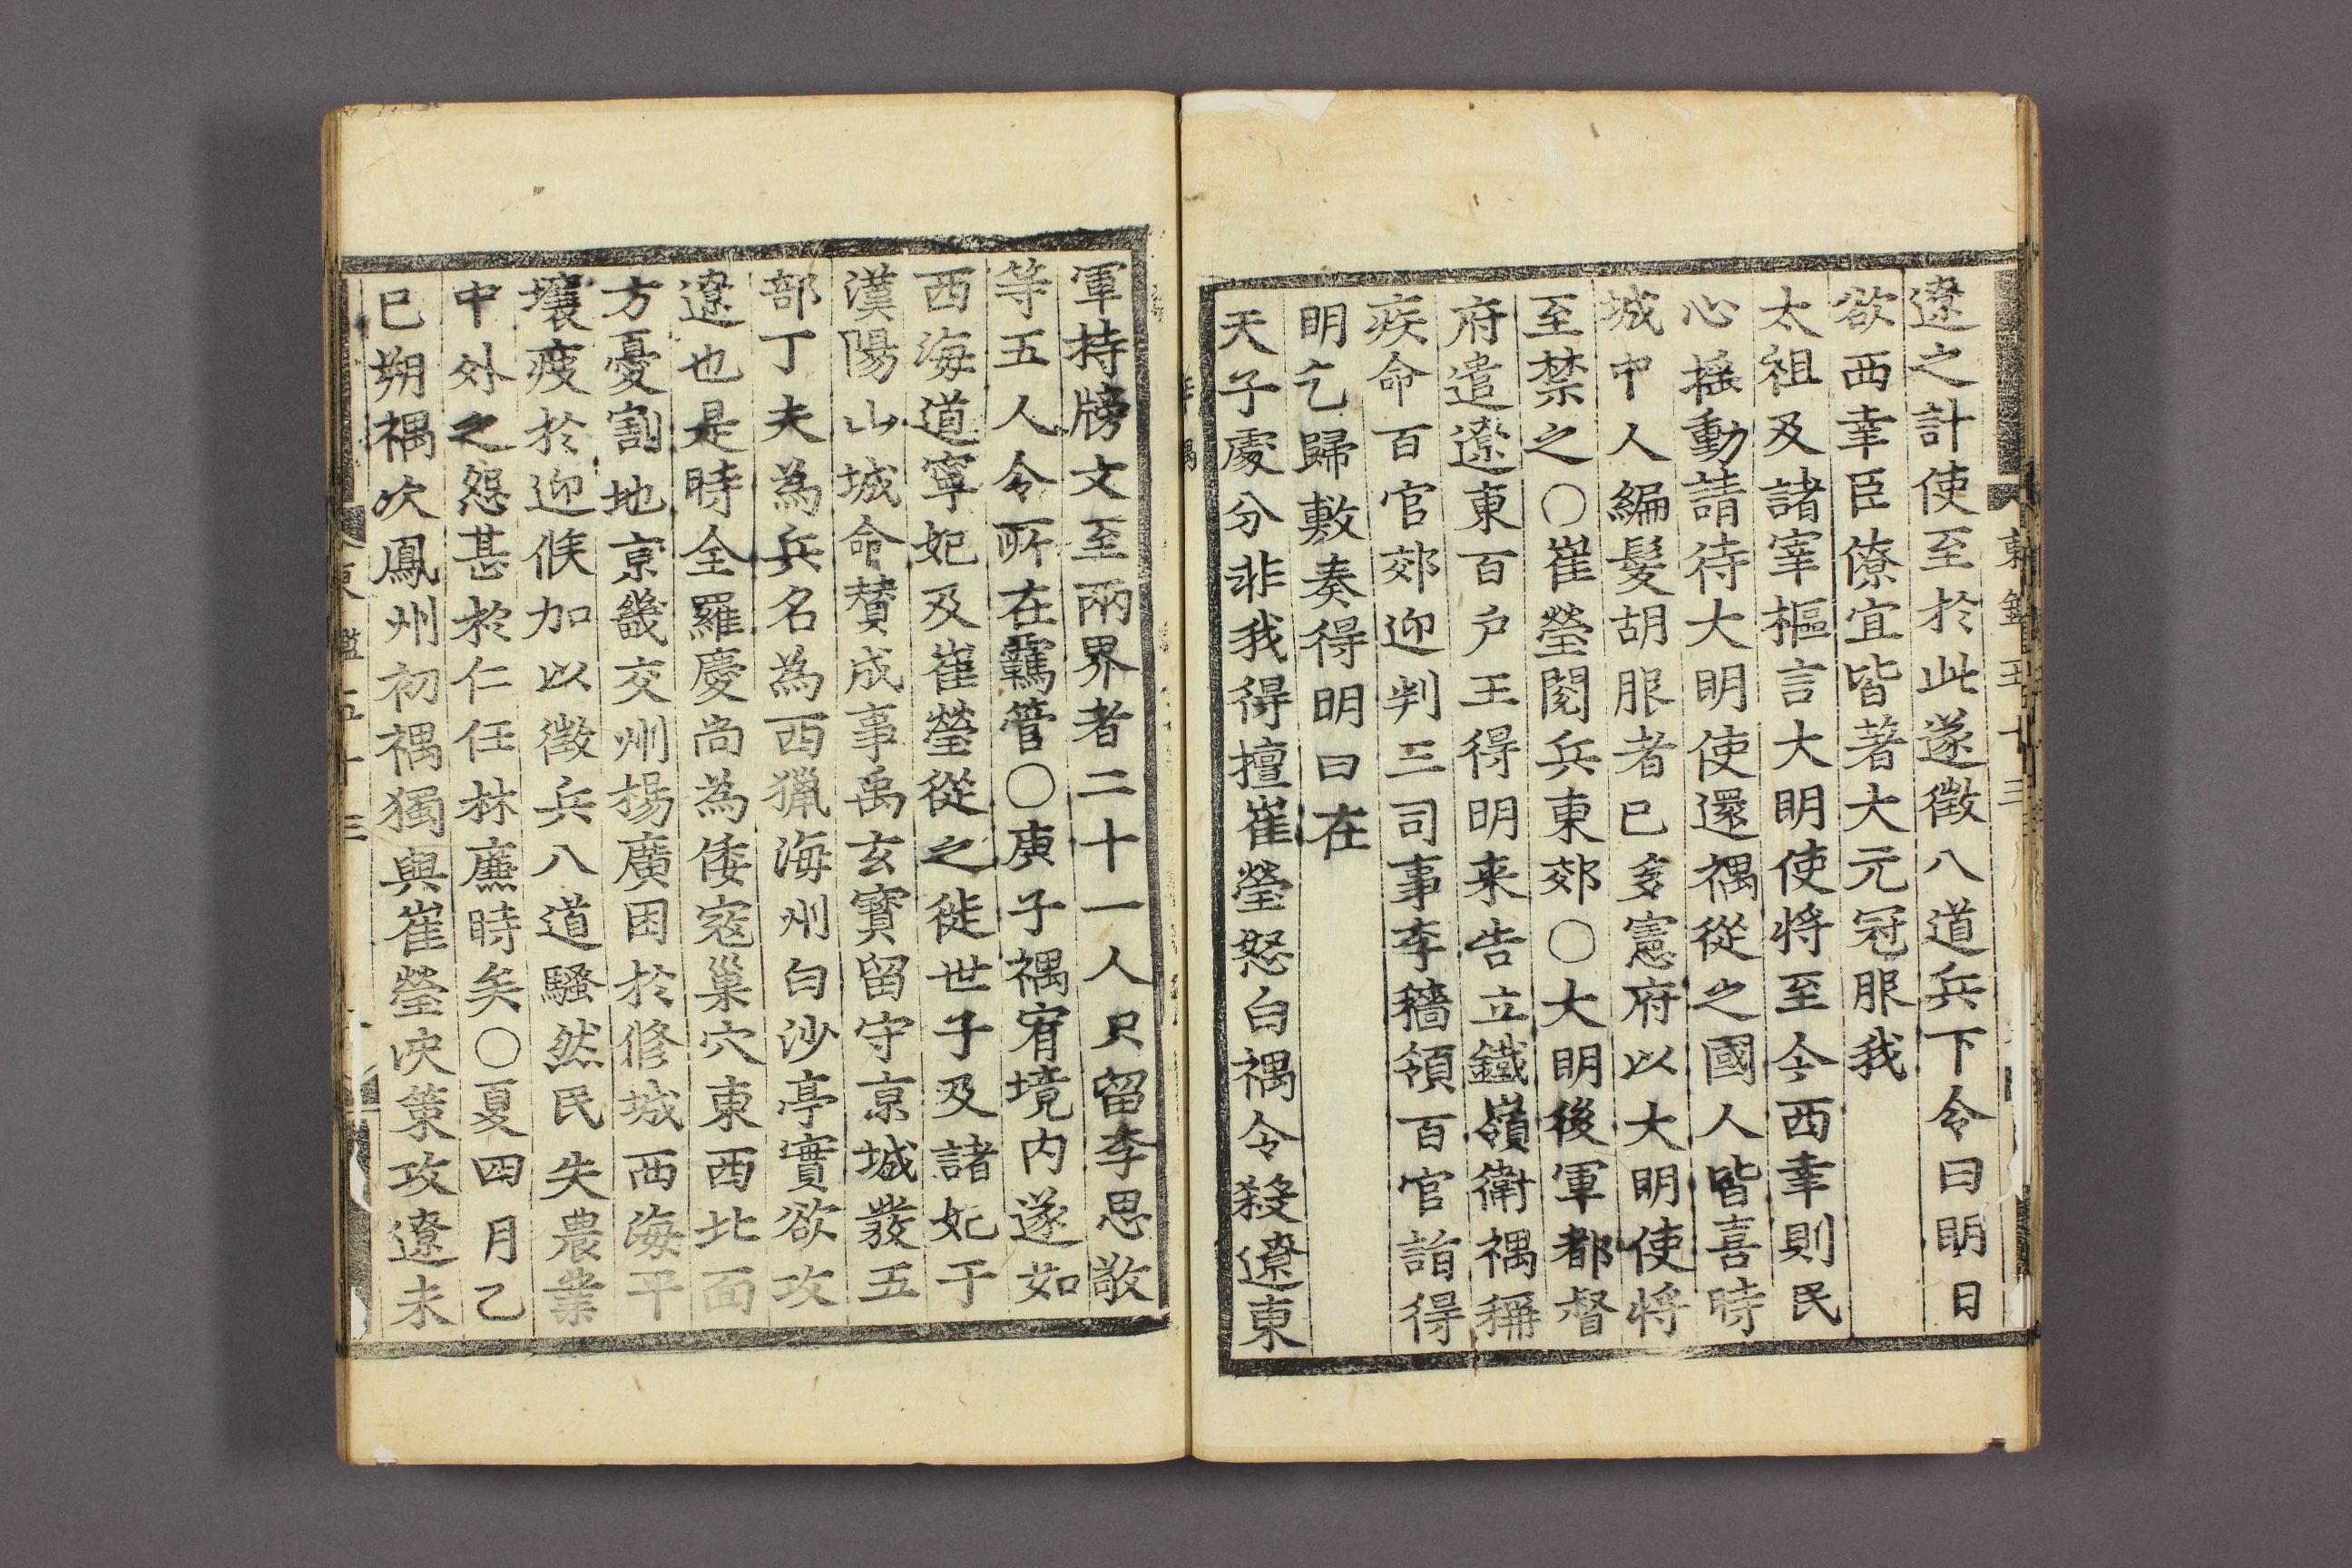 遼之計使至於此遂徵八道兵下令曰明日
欲西幸臣僚宜皆著大元冠服我
太祖及諸宰樞言大明使将至今西幸則民
心搖動請待大明使還禑從之國人皆喜時
城中人編髮胡服者已多憲府以大明使将
至禁之○崔瑩閱兵東郊○大明後軍都督
府遣遼東百戶王得明来告立鐵嶺衛禑稱
疾命百官郊迎判三司事李穡領百官詣得
明乞歸敷奏得明曰在
天子處分非我得擅崔瑩怒白禑令殺遼東
軍持牓文至兩界者二十一人只留李思敬
等五人令所在羈管○庚子禑宥境内遂如
西海道寧妃及崔瑩從之徙世子及諸妃于
漢陽山城命賛成事禹玄寶留守京城發五
部丁夫為兵名為西獵海州白沙亭實欲攻
遼也是時全羅慶尚為倭寇巢穴東西北面
方憂割地京畿交州揚廣困於修城西海平
壤疲於迎候加以徵兵八道騷然民失農業
中外之怨甚於仁任林廉時矣○夏四月乙
巳朔禑次鳳州初禑獨與崔瑩决策攻遼未